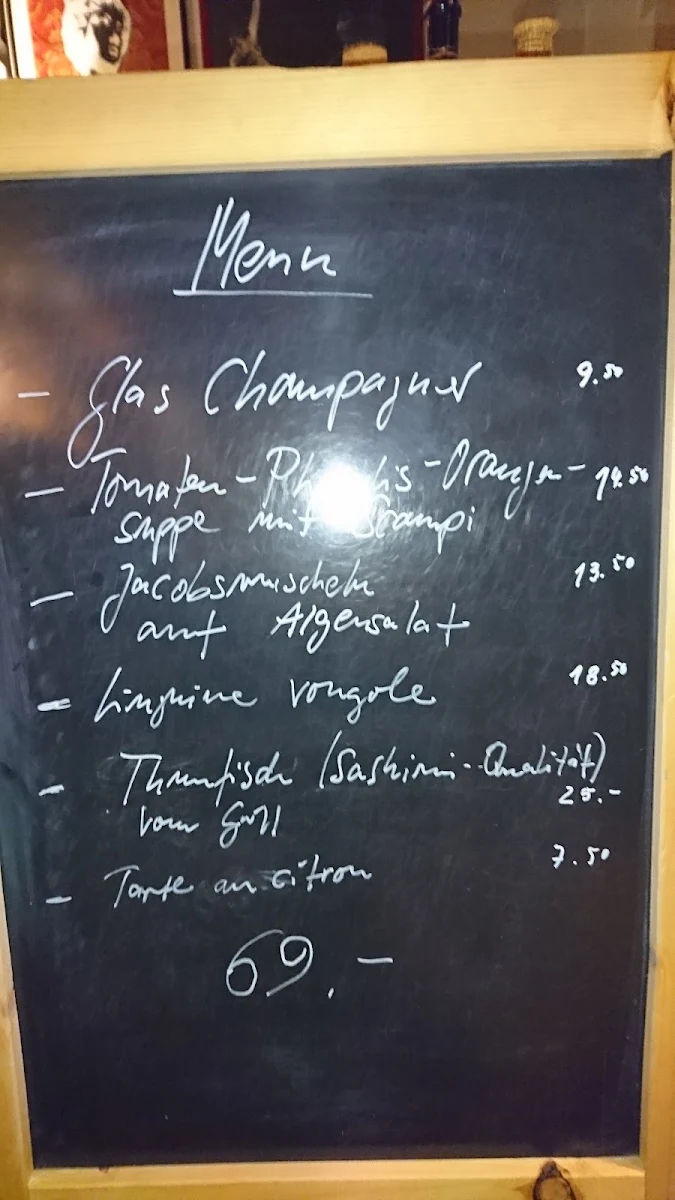 Menu
- Glas Champagner 9.50
- Tomaten-Physalis-Orangen- 14.50
suppe mit Scampi
- Jacobsmuscheln 13.50
auf Algensalat
- Linguine Vongole 18.50
- Thunfisch (Sashimi-Qualität)
25.-
vom Grill
- Tarte au citron 7.50
69.-